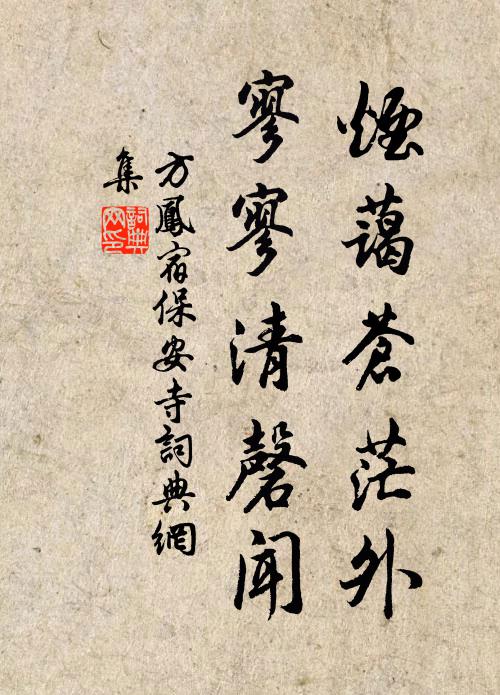 煙藹蒼茫外
寥寥清磬聞
方鳳宿保安寺詞典網
集
詞典網印